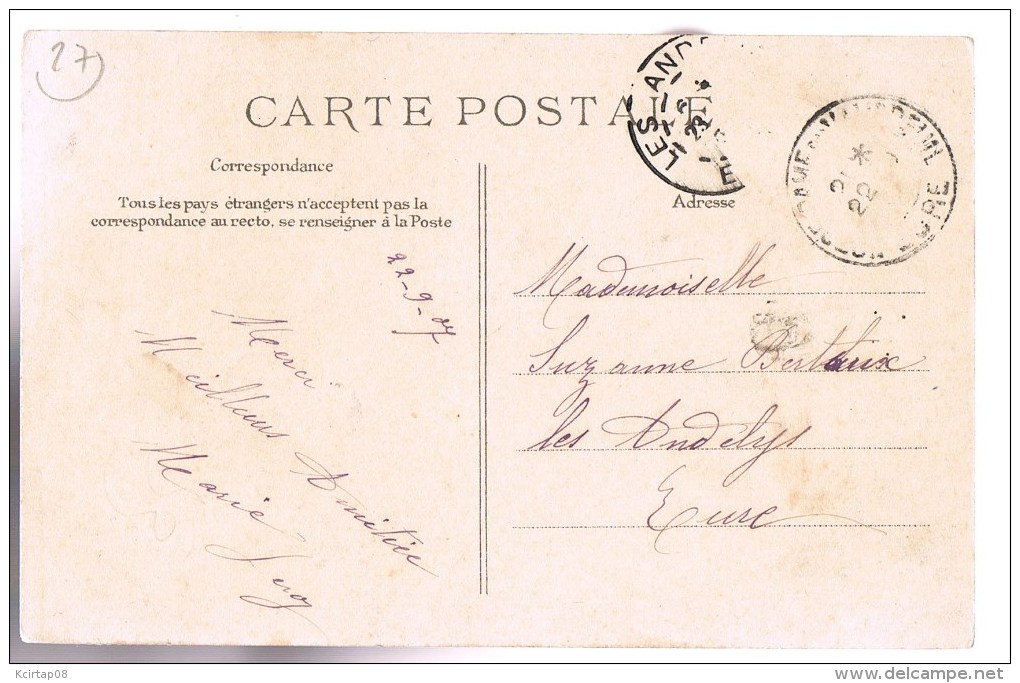 27
CARTE POSTALE
Correspondance
Tous les pays étrangers n'acceptent pas la
correspondance au recto, se renseigner à la Poste
LES-AND
Adresse
EURE
22-9-07
Merci
Meilleurs Amitiés
Marie
Mademoiselle
Suzanne
les Andelys
Eure
Kcirtap08
www.delcampe.net